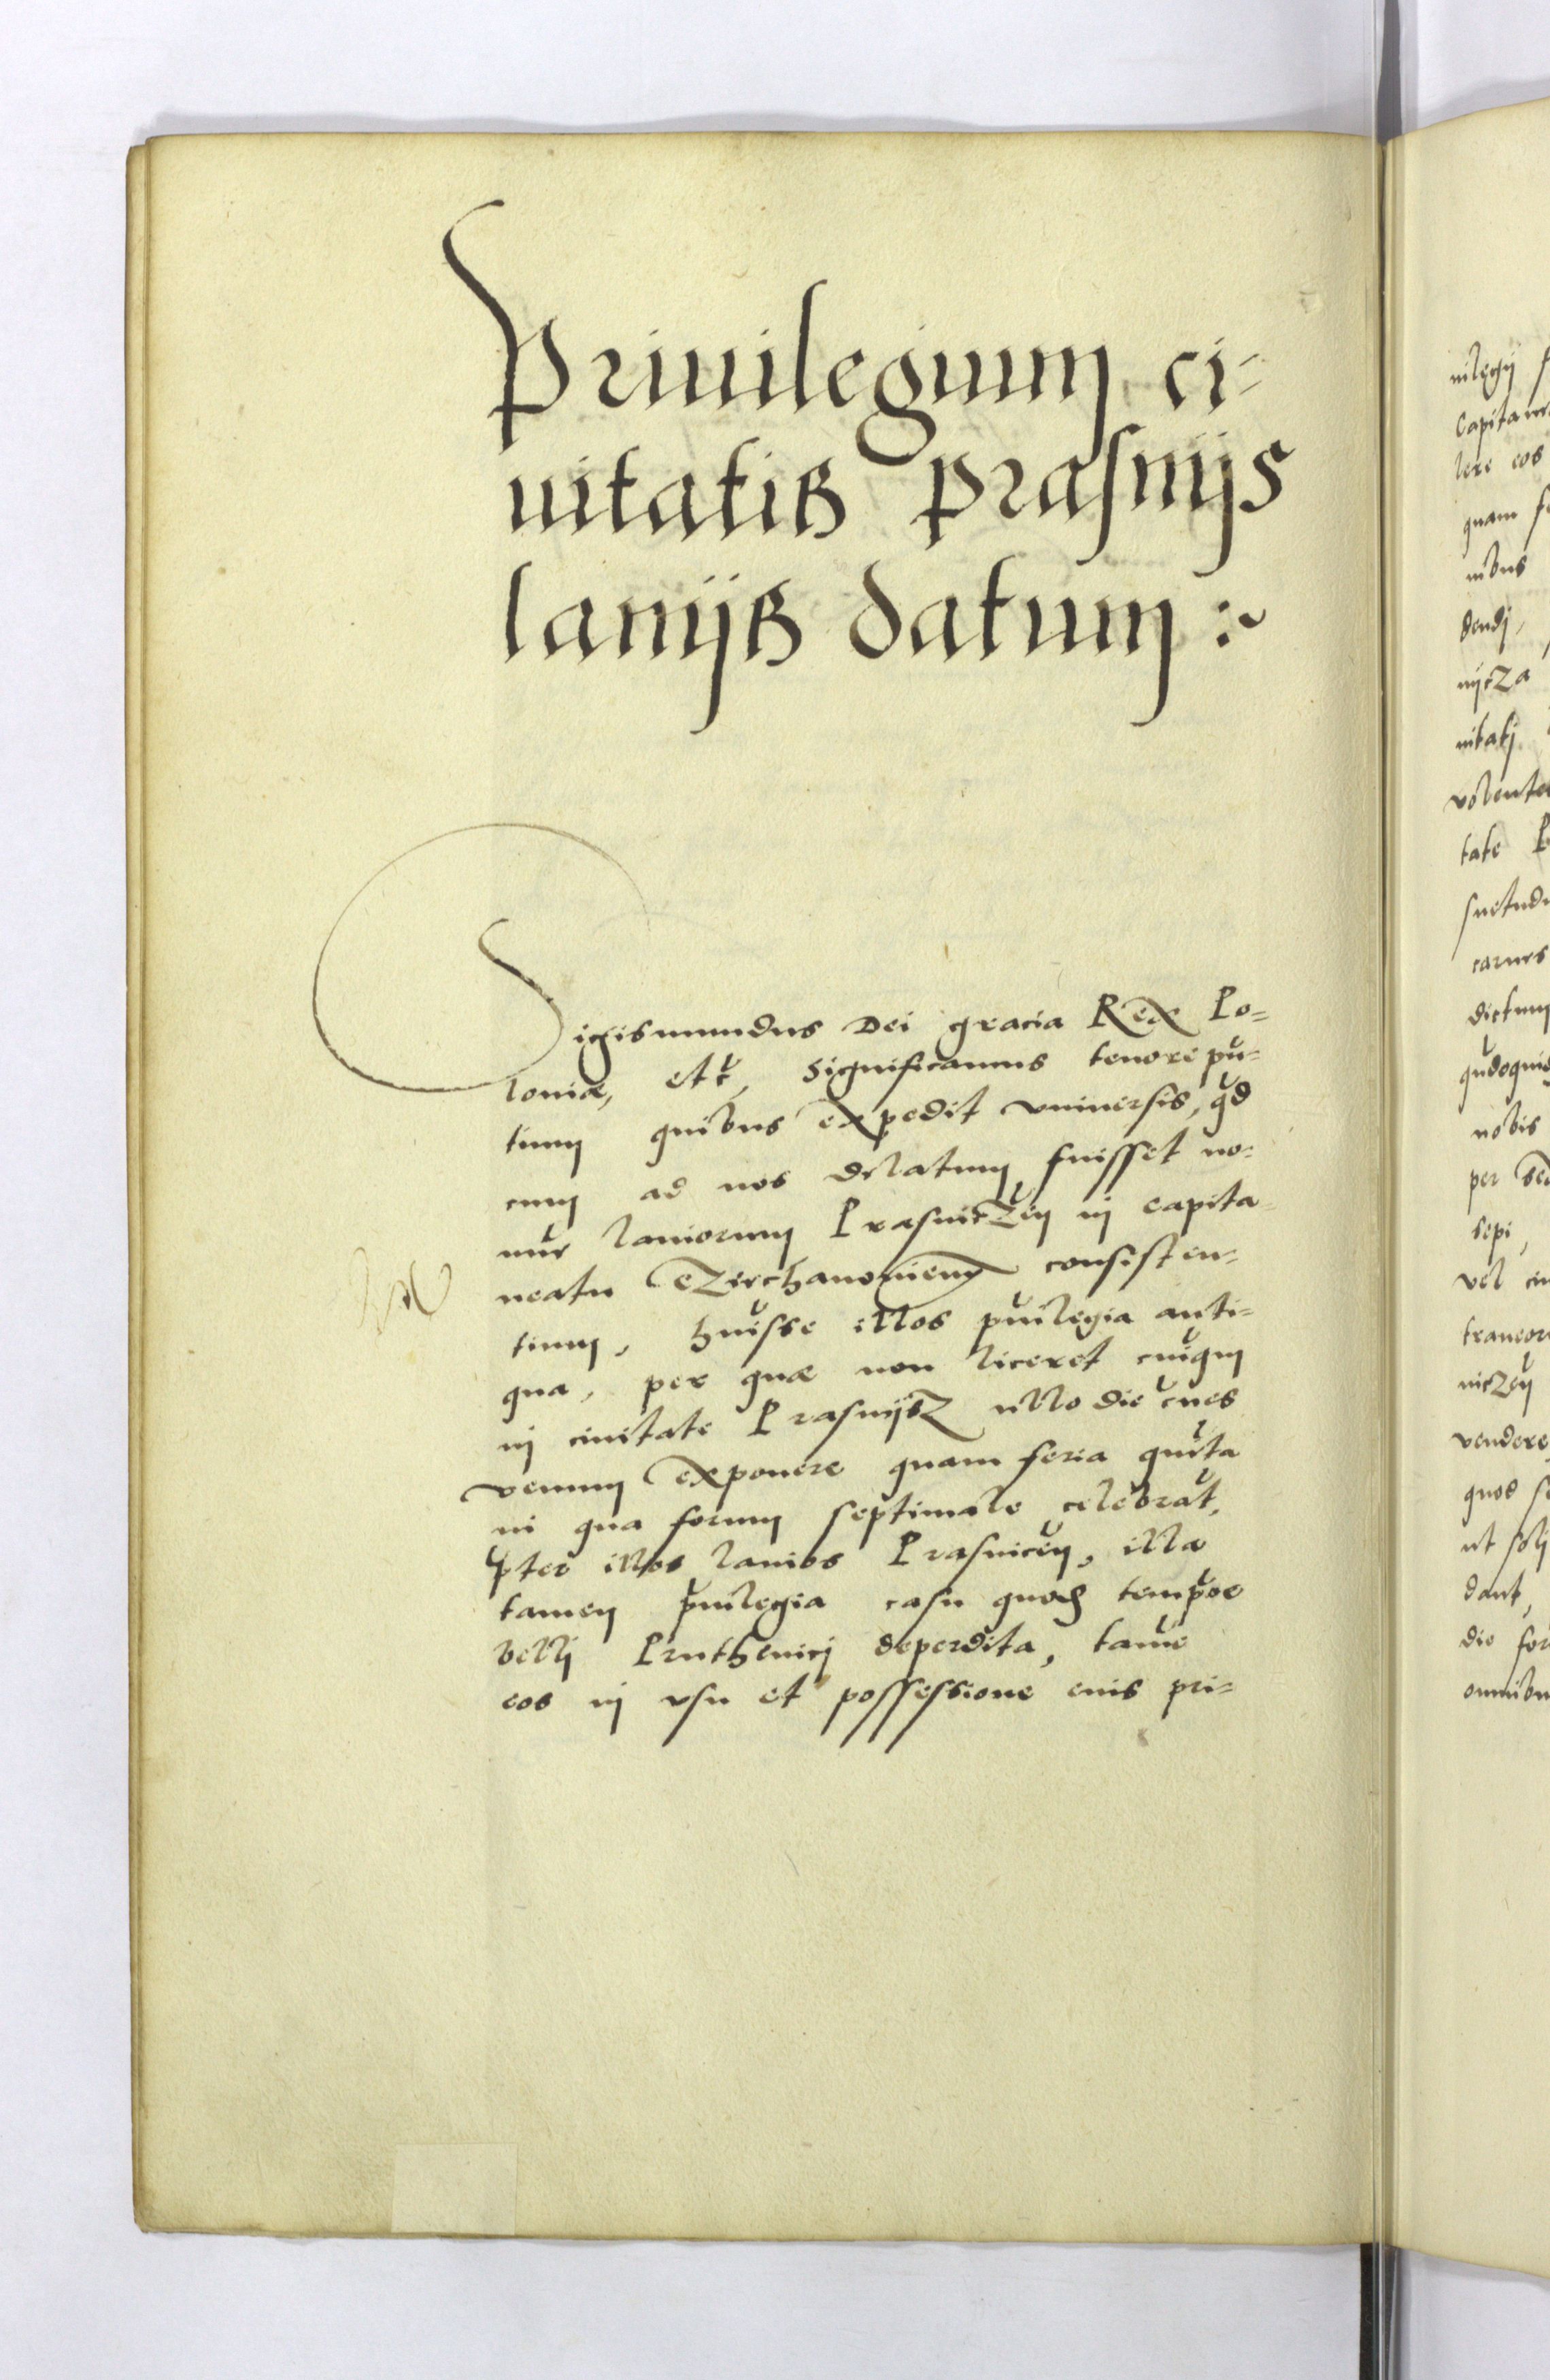 Priuilegium ci-
uitatis prasnijs
lanijs datum :~
Sigismundus Dei gracia Rex Po=
loniæ, etc̃, Significamus tenore pñ-
tium quibus expedit vniuersis, q̃d
cum ad nos delatum fuisset no-
mĩe laniorum Prasniczeñ in capita-
neatu Czirchanouieñ consisten-
tium, hũisse illos pũilegia anti-
qua, per quæ non liceret cuiqm̃
in ciuitate Prasnijsz ullo die cr̃nes
venum exponere quam feria qui̇ta
in qua forum septimale celebrat̃,
p̃ter illos lanios Prasniceñ, illa
tamen pũilegia casu quod̃ temp̃oe
belli Pruthenici deperdita, tamẽ
eos in vsu et possessione euis pri-
uilegij
Capitane
lere eos
quam
mbus
dendi,
niicza
uitatj
volente
tate
suetud
carnes
dictum
qũdoquid
nobis
per
sepi,
vel
traneor
niczeñ
vendere
quod
ut
dant,
die for
omnibu